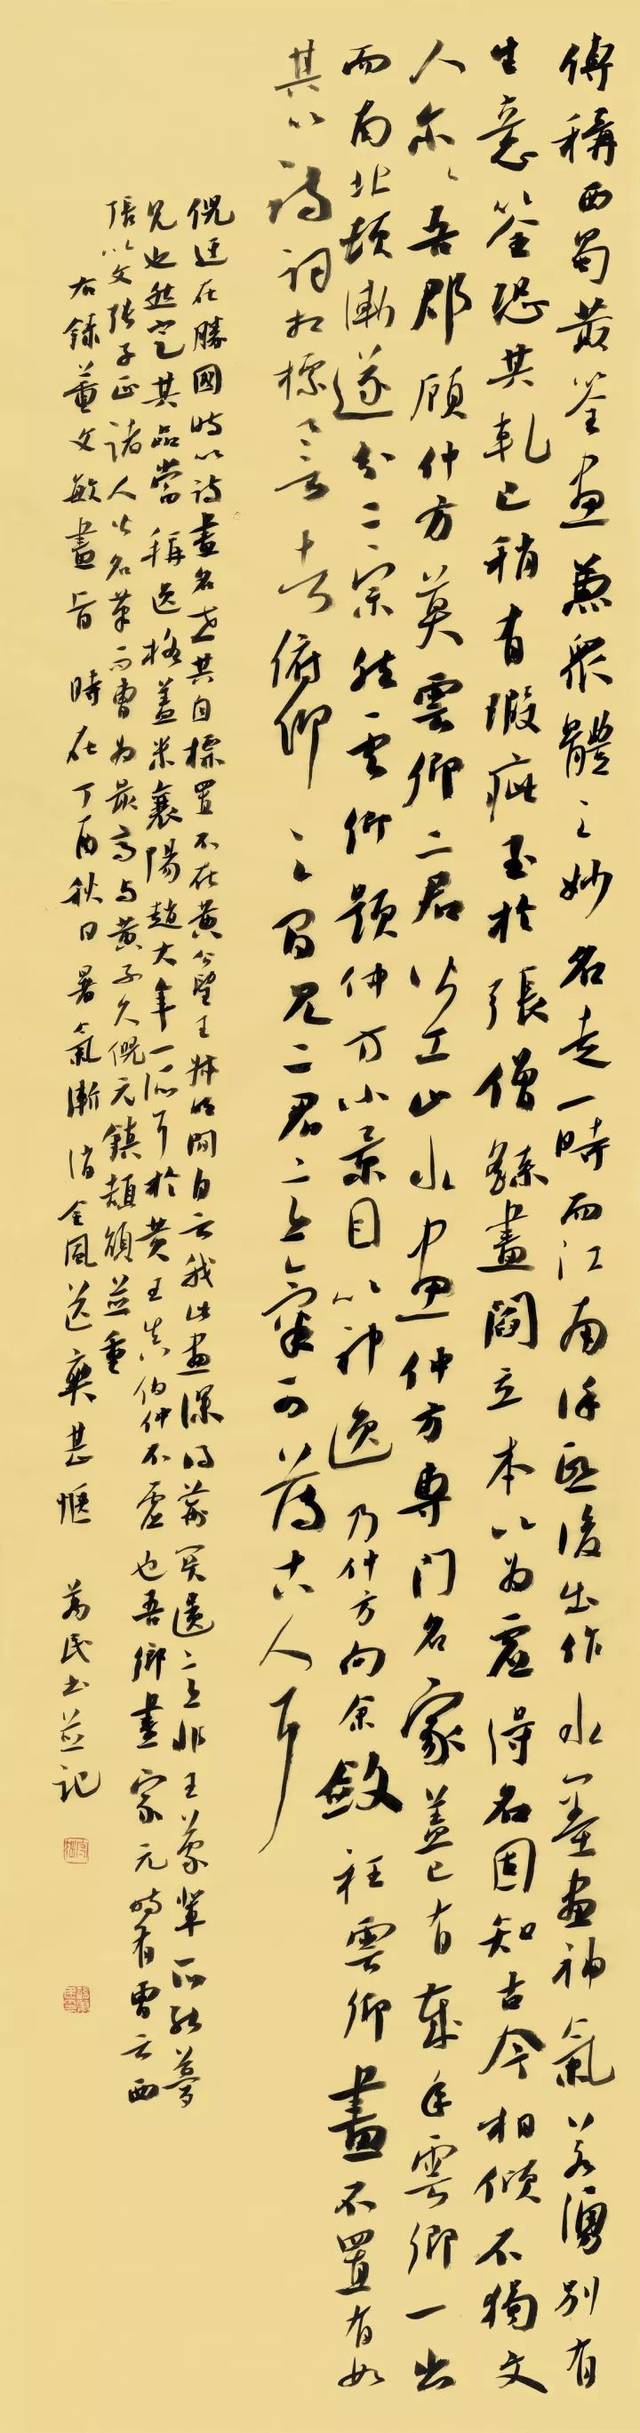 傳稱西蜀黃筌畫兼眾體之妙名走一時而江南徐熙後出作水墨畫神氣若湧別有
生意筌恐其軋己稍有瑕疵至於張僧繇畫閻立本以為虛得名固知古今相傾不獨文
人爾爾吾郡顧仲方莫雲卿二君皆工山水畫仲方專門名家蓋已有歲年雲卿一出
而南北頓漸遂分二宗然雲卿題仲方小景目以神逸乃仲方向余斂衽雲卿畫不置有如
其以詩詞相標譽者俯仰之間見二君之意氣可薄古人耳
倪迂在勝國時以詩畫名世其自標置不在黃公望王叔明間自云我此畫深得荊關遺意非王蒙輩所能夢
見也然定其品當稱逸格蓋米襄陽趙大年一派耳於黃王真伯仲不虛也吾鄉畫家元時有曹云西
張以文張子正諸人皆名筆而曹為最高與黃子久倪元鎮頡頏並重
右錄董文敏畫旨 時在丁酉秋日暑氣漸消金風送爽甚愜 民书並記